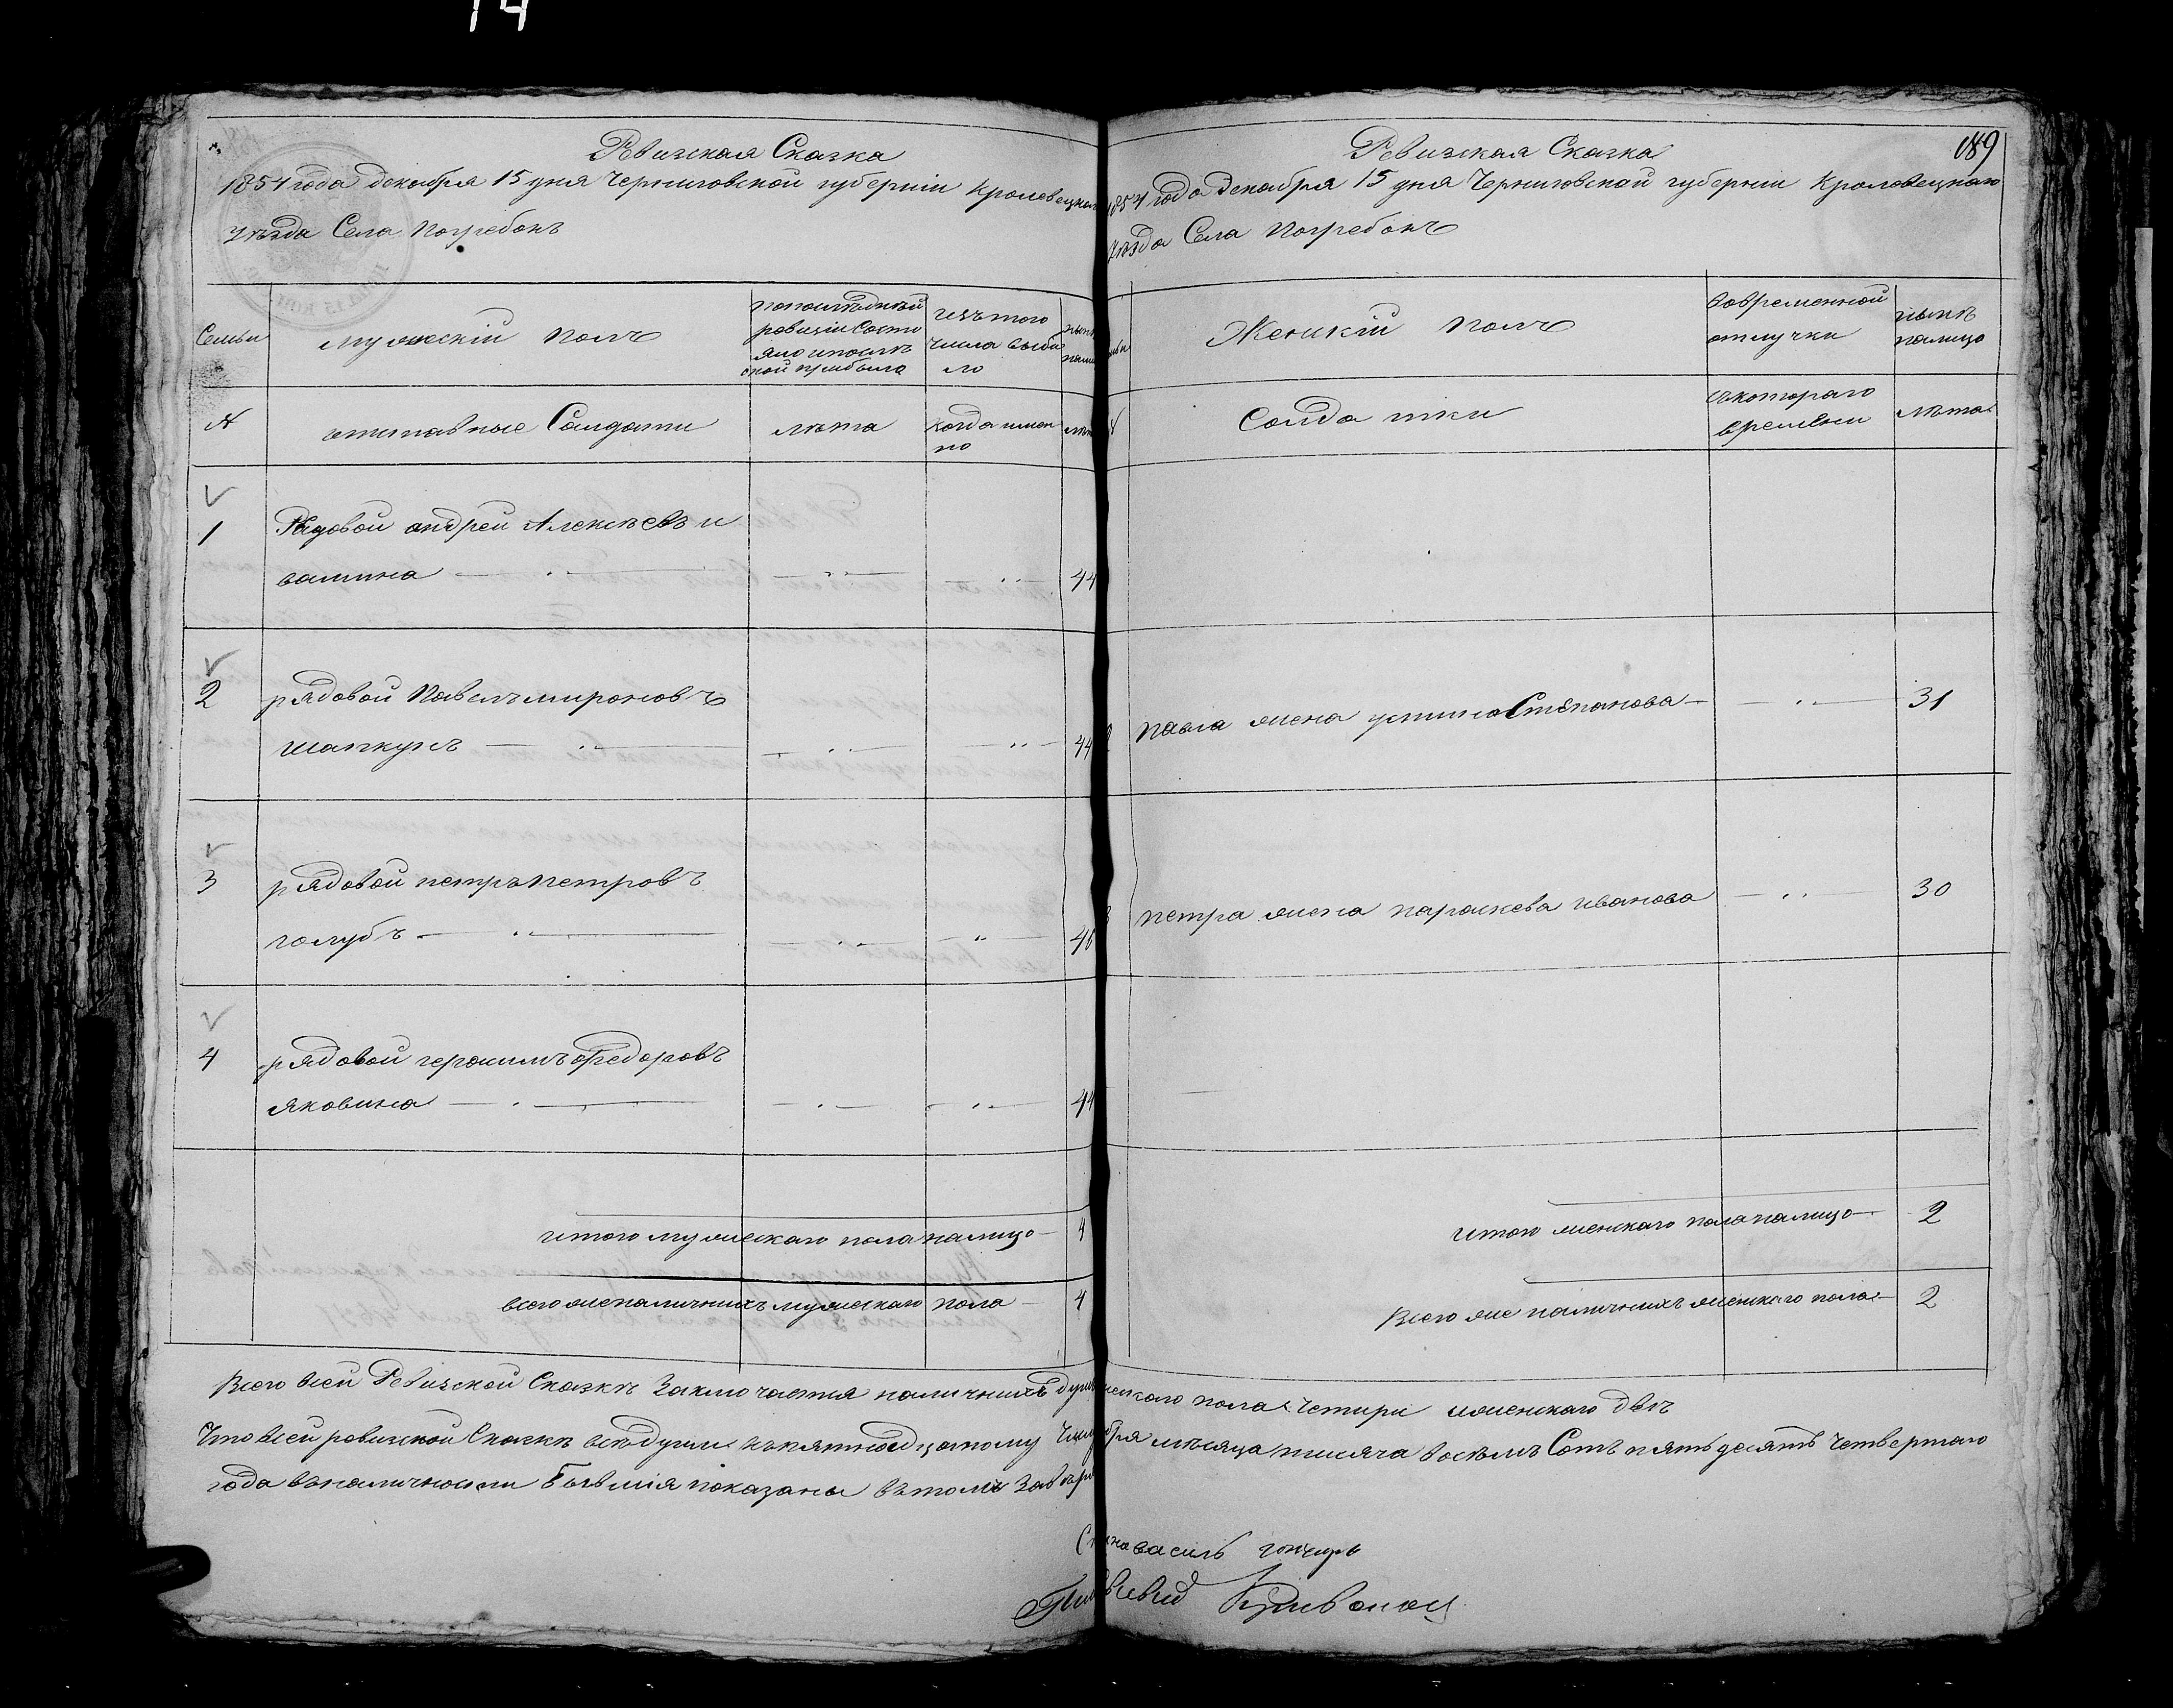 14
Ревизская Сказка
1854 года декабря 15 дня Черниговской губернiи Кролевецкаго
уѣзда Села Погребокъ
Семьи
мужескiй полъ
попослѣдней
ревизiи Состо
яло ипослѣ
оной прибыло
изътого
числа выбы
ло
нынѣ
отставные Салдати
лѣта
когда имен
но
лѣта
1
Рядовой андрей Алексѣевъ и
вашина
44
2
рядовой Павелъ мироновъ
шапкунъ
44
3
рядовой петръ петровъ
голубъ
4
рядовой герасимъ Федоровъ
яковина
44
итого мужескаго пола налицо 4
всего женаличнихъ мужескаго пола 4
189
Ревизская Сказка
1854 года декабря 15 дня Черниговской губернiи Кролевецкаго
уѣзда Села Погребокъ
Женскiй полъ
вовременной
отлучки
нынѣ
налицо
Солдатки
скотораго
времени
лѣта
2 павла жена устина Степанова 31
3 петра жена параскева иванова 30
итого женскаго пола налицо 2
Всего же наличнихъ женскаго пола 2
Всего всей Ревизской Сказкѣ Заключается наличнихъ душъ мужескаго пола четири иженскаго двѣ
Что всей ревизской Сказкѣ всѣ души къ пятнодцатому месяца тисяча восѣмъ Сотъ пятьдесятъ четвертаго
года вьналичности бывшiя показаны вътомъ
василь гончаръ